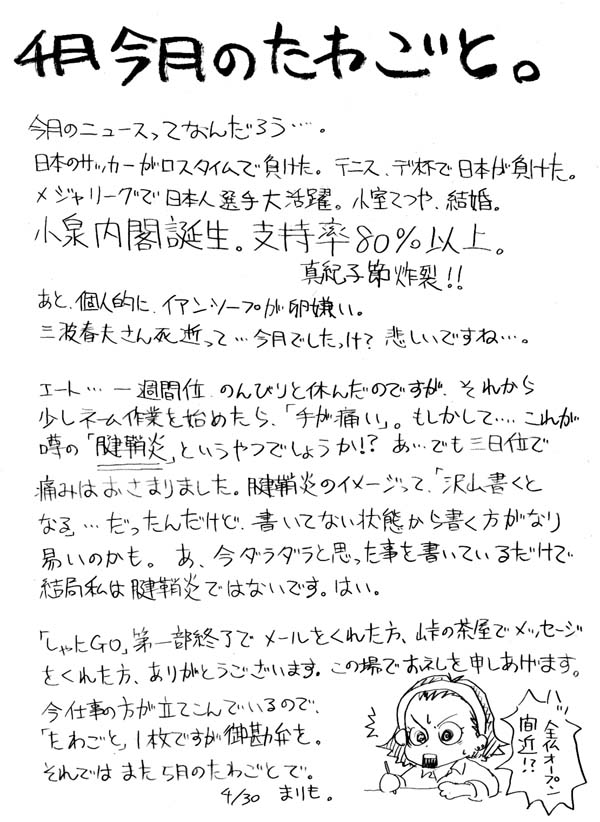 4月 今月のたわごと。
今月のニュースってなんだろう…。
日本のサッカーがロスタイムで負けた。テニス、デ杯で日本が負けた。
メジャリーグで日本人選手大活躍。小室てつや、結婚。
小泉内閣誕生。支持率80%以上。
真紀子節炸裂!!
あと、個人的に、イアンソープが卵嫌い。
三波春夫さん死逝って…今月でしたっけ?悲しいですね…。
エート…一週間位、のんびりと休んだのですが、それから
少しネーム作業を始めたら、「手が痛い」。もしかして…これが
噂の「腱鞘炎」というやつでしょうか!?あ…でも三日位で
痛みはおさまりました。腱鞘炎のイメージって、「沢山書くと
なる」…だったんだけど、書いてない状態から書く方がなり
易いのかも。あ、今ダラダラと思った事を書いているだけで
結局私は腱鞘炎ではないです。はい。
「しゃにGO」第一部終了でメールをくれた方、峠の茶屋でメッセージ
をくれた方、ありがとうございます。この場でお礼を申しあげます。
今仕事の方が立てこんでいるので、
「たわごと」1枚ですが御勘弁を。
それではまた5月のたわごとで。
4/30 まりも。
ハッ
全仏オープン
間近!?